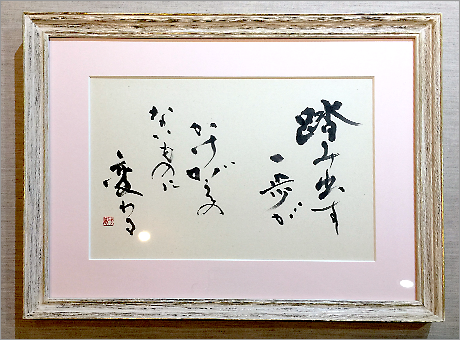 踏み出す
一歩が
かけがえの
ないものに
変わる